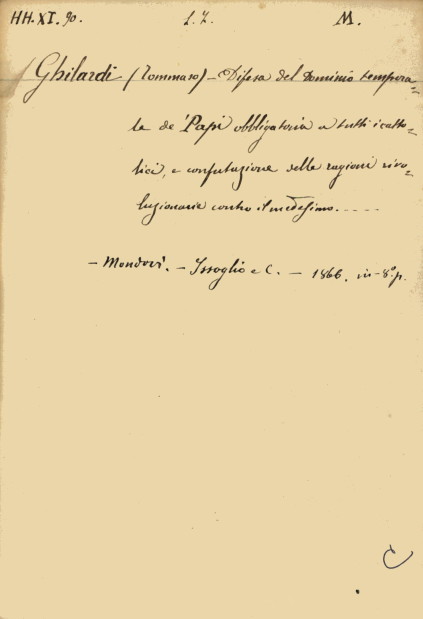 HH.XI.90. L.Z. M.
Ghilardi (Tommaso) – Difesa del Dominio tempora=
le de' Papi obbligatoria a tutti i catto=
lici, e confutazione delle ragioni rivo=
luzionarie contro il medesimo. ....
– Mondovì. – Issoglio e C. – 1866. in-8.° p.
C